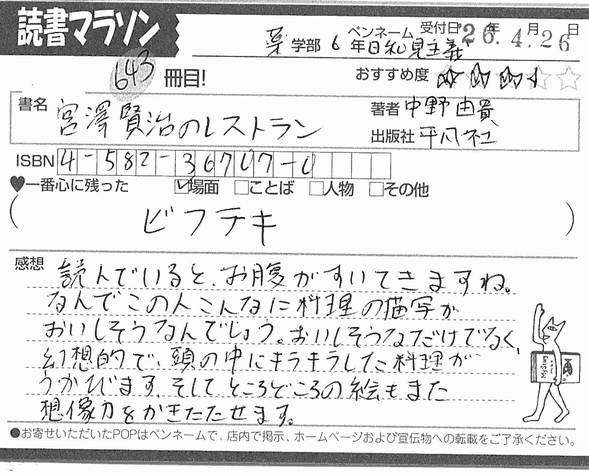 読書マラソン
薬 学部 6 年 ペンネーム 日和見主義 受付日 '26年4月26日
643 冊目!
おすすめ度
書名 宮澤賢治のレストラン
著者 中野由貴
出版社 平凡社
ISBN 4-582-36707-0
♥一番心に残った ☑場面 □ことば □人物 □その他
( ビフテキ )
感想
読んでいると、お腹がすいてきますね。
なんでこの人こんなに料理の描写が
おいしそうなんでしょう。おいしそうなだけでなく、
幻想的で、頭の中にキラキラした料理が
うかびます。そしてところどころの絵もまた
想像力をかきたたせます。
●お寄せいただいたPOPはペンネームで、店内で掲示、ホームページおよび宣伝物への転載をご了承ください。